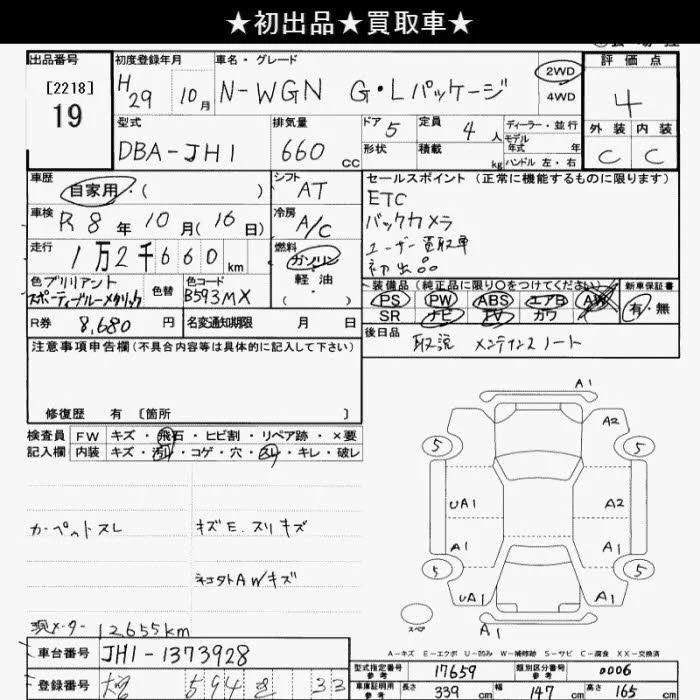 ★初出品★買取車★
出品番号
[2218]
19
初度登録年月
H29 10月
車名・グレード
N-WGN G・Lパッケージ
2WD
4WD
評価点
4
外装 内装
C C
型式
DBA-JH1
排気量
660 cc
ドア 5
形状
定員 4 人
積載 kg
ディーラー・並行
モデル年式 年
ハンドル 左・右
車歴
自家用・( )
シフト
AT
セールスポイント (正常に機能するものに限ります)
ETC
バックカメラ
ユーザー買取車
初出品
車検
R 8 年 10 月(16 日)
冷房
A/C
走行
1万2千660 km
燃料
ガソリン
軽油
( )
色 ブリリアント
スポーティブルーメタリック
色替
色コード
B593MX
装備品 (純正品に限り○をつけてください)
PS PW ABS エアB AW
SR ナビ TV カワ
新車保証書
有・無
R券 8,680 円
名変通知期限 月 日
後日品
取説 メンテナンスノート
注意事項申告欄(不具合内容等は具体的に記入して下さい)
修復歴 有 〔箇所 〕
検査員
記入欄
FW キズ・飛石・ヒビ割・リペア跡・×要
内装 キズ・汚れ・コゲ・穴・スレ・キレ・破レ
カーペットスレ
キズE.スリキズ
ネコタトAWキズ
現メーター 12655km
車台番号 JH1-1373928
登録番号
594
33
A1
A2
5
5
UA1
A2
A1
A1
5
5
UA1
A1
A1
スペア
A-キズ E-エクボ U-凹み W-補修跡 S-サビ C-腐食 XX-交換済
型式指定番号 参考 17659
類別区分番号 参考 0006
車庫証明用 参考 長さ 339 cm 幅 147 cm 高さ 165 cm